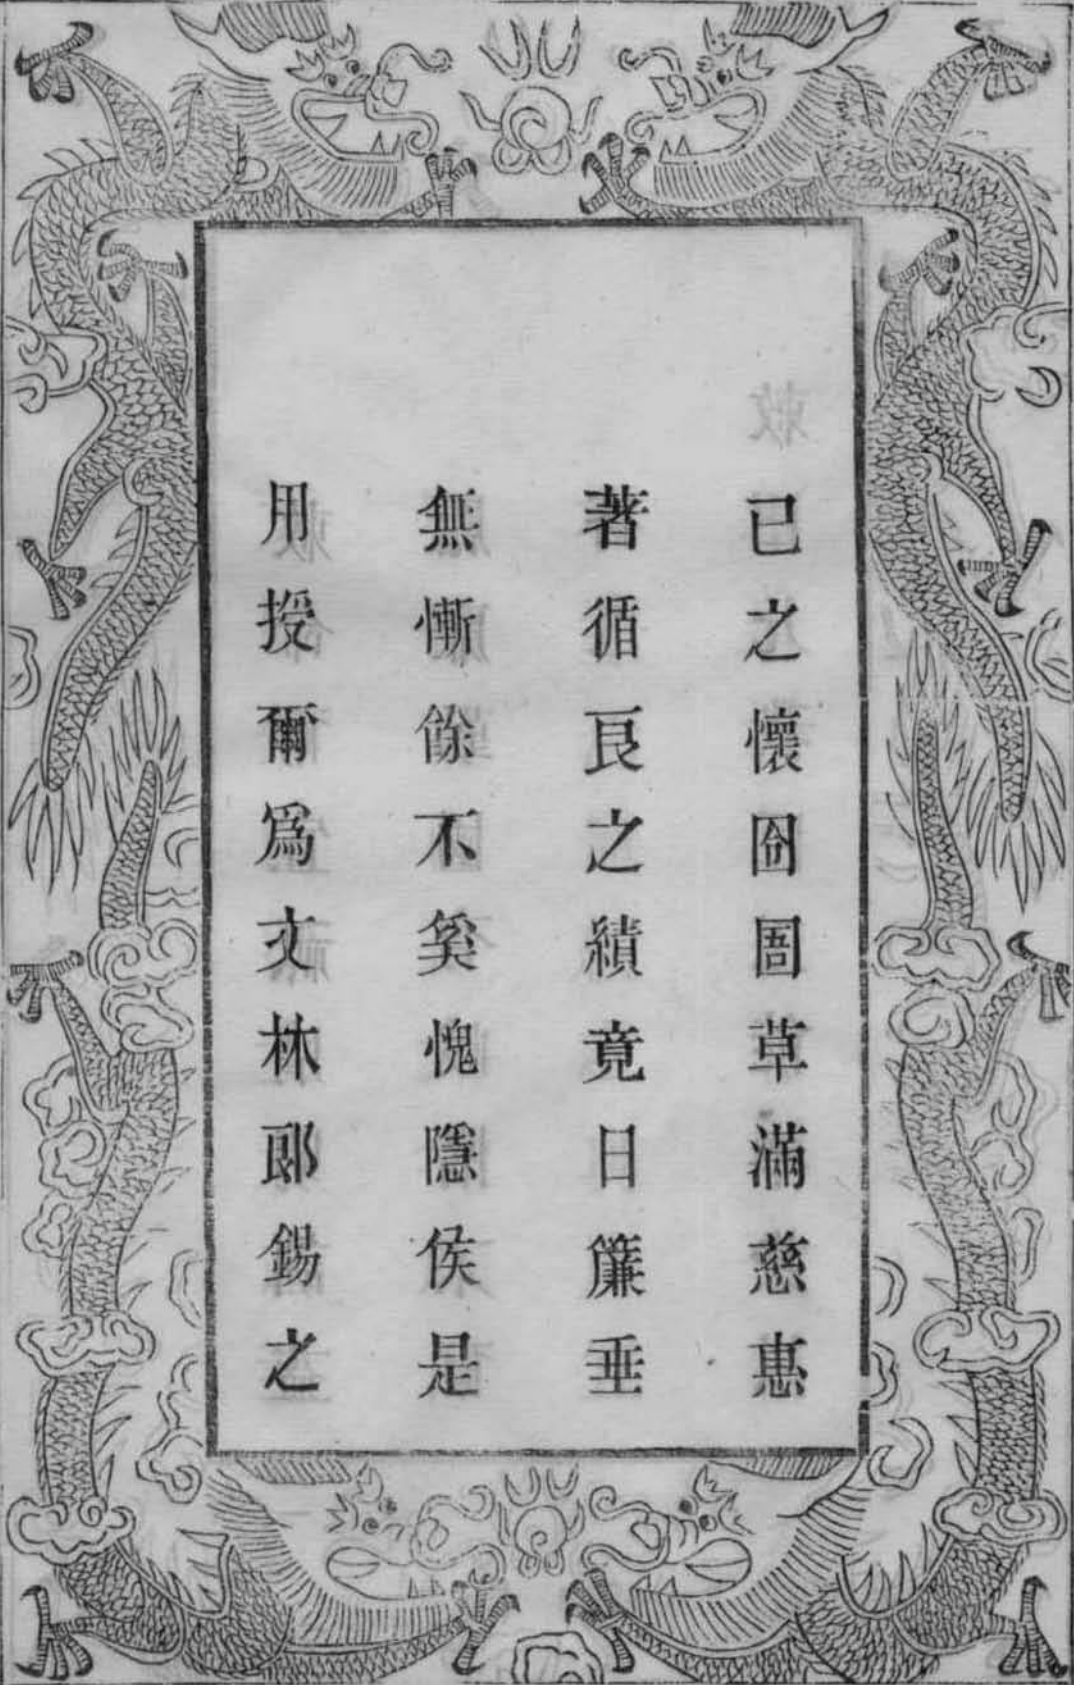 已之懷囹圄草滿慈惠
著循良之績竟日簾垂
無慚餘不奚愧隱侯是
用授爾爲文林郎錫之